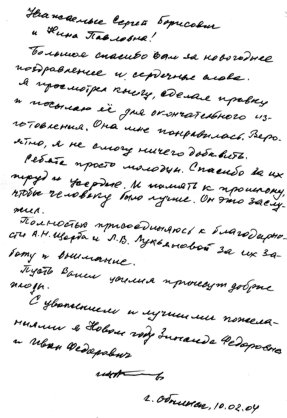 Уважаемые Сергей Борисович
и Нина Павловна!
Большое спасибо вам за новогоднее
поздравление и сердечные слова.
Я просмотрел книгу, сделал правку
и посылаю её для окончательного из-
готовления. Она мне понравилась. Веро-
ятно, я не смогу ничего добавить.
Ребята просто молодцы. Спасибо за их
труд и усердие. И память к прошлому,
чтобы человеку было лучше. Он это заслу-
жил.
Полностью присоединяюсь к благодарно-
сти А.Н. и Л.В. Лукьяновой за их за-
боту и внимание.
Пусть Ваши усилия принесут добрые
плоды.
С уважением и лучшими пожела-
ниями в Новом году Зинаида Федоровна
и Иван Федорович
г. Обнинск, 10.02.04